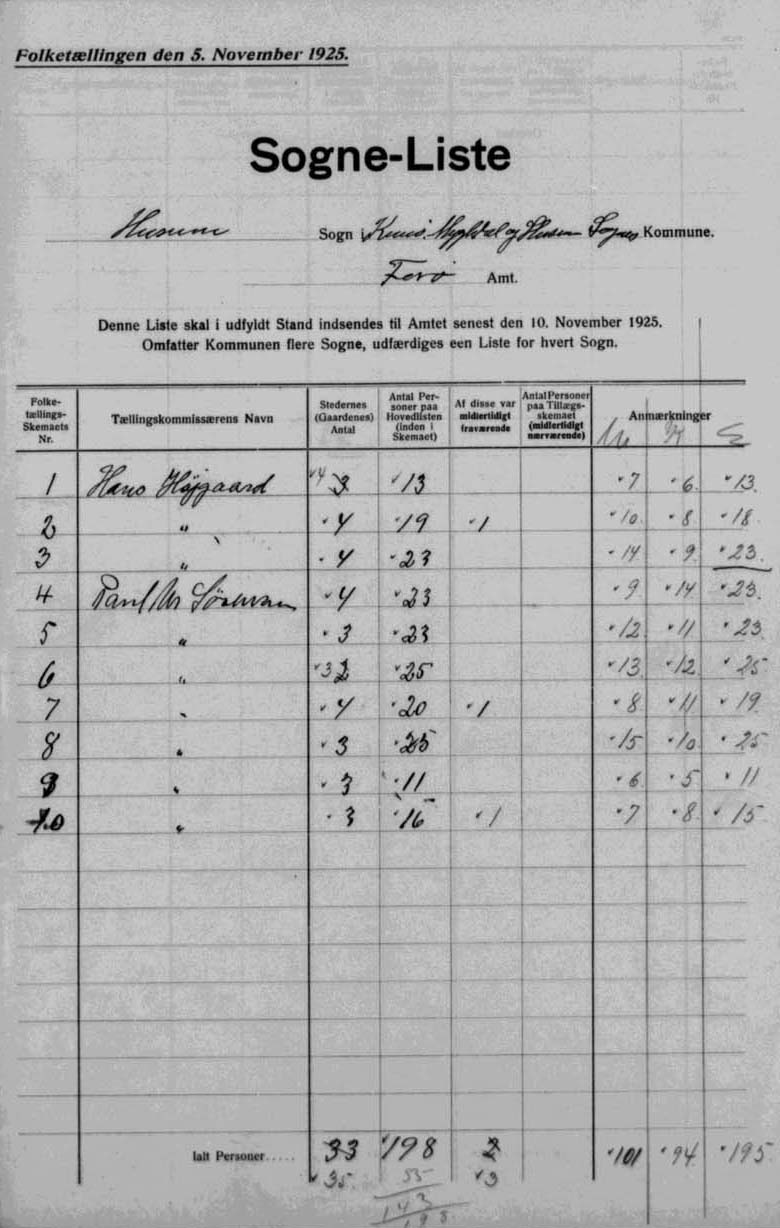 Folketællingen den 5. November 1925.
Sogne-Liste
Husum Sogn i Kunö Mygldal og Husum Sognes Kommune.
Ferö Amt.
Denne Liste skal i udfyldt Stand indsendes til Amtet senest den 10. November 1925.
Omfatter Kommunen flere Sogne, udfærdiges een Liste for hvert Sogn.
Folke-tællings-Skemaets Nr. Tællingskommissærens Navn Stedernes (Gaardenes) Antal Antal Personer paa Hovedlisten (inden i Skemaet) Af disse var midlertidigt fraværende Antal Personer paa Tillægs-skemaet (midlertidigt nærværende) Anmærkninger
M K
1 Hans Højgaard 4 3 13 7 6 13
2 " 4 19 1 10 8 18
3 " 4 23 14 9 23
4 Paul 4 23 9 14 23
5 " 3 23 12 11 23
6 " 3 2 25 13 12 25
7 " 4 20 1 8 11 19
8 " 3 25 15 10 25
9 " 3 11 6 5 11
10 " 3 16 1 7 8 15
Ialt Personer..... 33 198 2 101 94 195
35 55 3
143
198